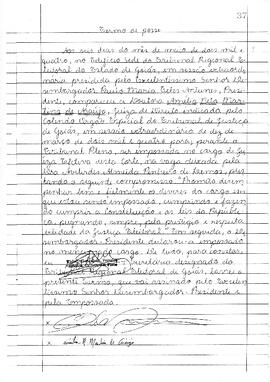 37
Termo de posse
Aos seis dias do mês de maio de dois mil e
quatro, no Edifício sede do Tribunal Regional E
leitoral do Estado de Goiás, em sessão extraordi
nária presidida pelo Excelentíssimo Senhor De
sembargador Paulo Maria Teles Antunes, Presi
dente, compareceu a Doutora Amélia Neto Mar
tins de Araújo, Juíza de Direito indicada pelo
Colendo Órgão Especial do Tribunal de Justiça
de Goiás, em sessão extraordinária de dez de
março de dois mil e quatro para, perante o
Tribunal Pleno, ser empossada no cargo de Ju
íza Efetiva desta Corte, na vaga deixada pela
Dra. Avelirdes Almeida Pinheiro de Lemos, pres
tando o seguinte compromisso: "Prometo desem
penhar bem e fielmente os deveres do cargo em
que estou sendo empossada, cumprindo e fazen
do cumprir a Constituição e as leis da República
e pugnando, sempre, pelo prestígio e respeita
bilidade da Justiça Eleitoral." Em seguida, o De
sembargador Presidente declarou a empossada
no mencionado cargo. Do que, para constar,
eu Secretária designada do
Tribunal Regional Eleitoral de Goiás, lavrei o
presente Termo, que vai assinado pelo Excelen
tíssimo Senhor Desembargador Presidente e
pela Empossada.